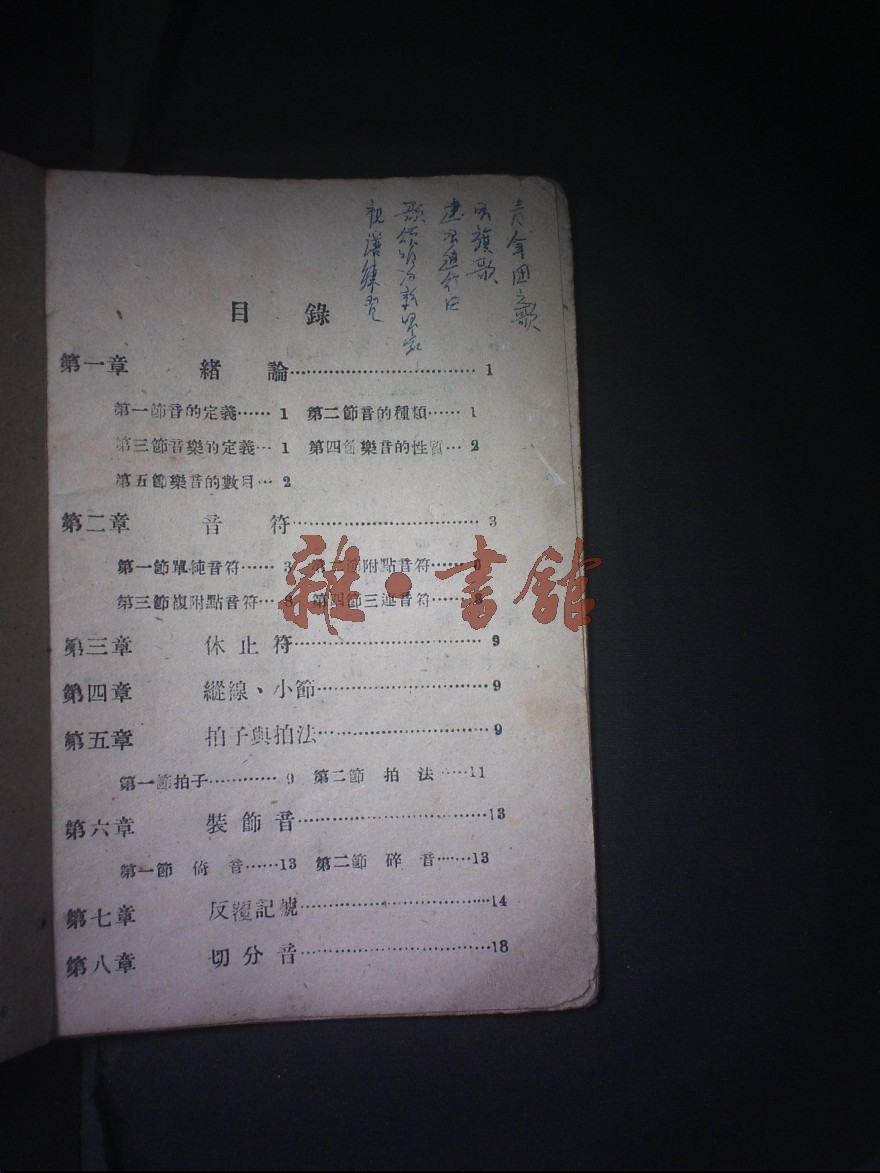 青年團之歌
軍旗歌
視譜練習
目錄
第一章 緒論……1
第一節音的定義……1 第二節音的種類……1
第三節音樂的定義…1 第四節樂音的性質…2
第五節樂音的數目…2
第二章 音符……3
第一節單純音符……3 第二節附點音符……6
第三節複附點音符…8 第四節三連音符……8
雜·書館
第三章 休止符……9
第四章 縱線、小節……9
第五章 拍子與拍法……9
第一節拍子……9 第二節 拍法……11
第六章 裝飾音……13
第一節 倚音……13 第二節 碎音……13
第七章 反覆記號……14
第八章 切分音……18